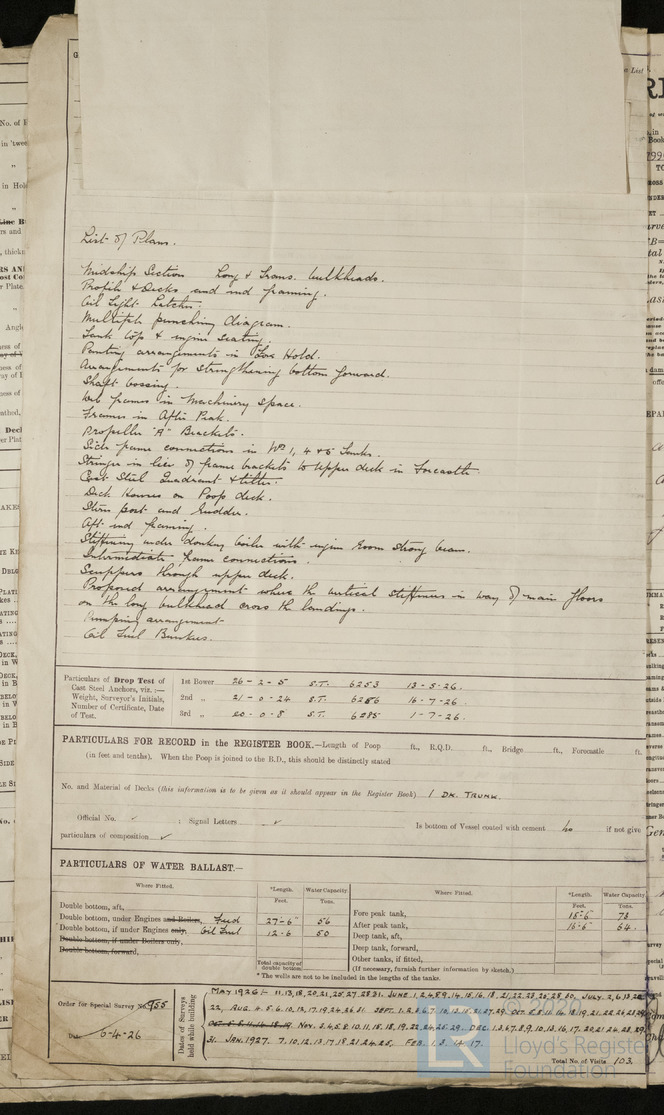 List of Plans.
Midship Section Long & Trans. bulkheads.
Profile & Decks and end framing.
Oil Tight Hatches.
Multiple punching diagram.
Tank top & engine seating.
Panting arrangements in Fore Hold.
Arrangements for strengthening bottom forward.
Shaft bossing.
Web frames in Machinery Space.
Frames in After Peak.
Propeller "A" Brackets.
Side frame connections in Nos 1, 4 & 5 Tanks.
Stringer in lieu of frame brackets to upper deck in Forecastle.
Cast Steel Quadrant & tiller.
Deck Houses on Poop deck.
Stern post and rudder.
Aft end framing.
Stiffening under donkey boiler with engine room strong beam.
Intermediate frame connections.
Scuppers through upper deck.
Proposed arrangement where the vertical stiffeners in way of main floors
on the long bulkhead cross the landings.
Pumping arrangement
Oil Fuel Bunkers.
Particulars of Drop Test of
Cast Steel Anchors, viz.:—
Weight, Surveyor's Initials,
Number of Certificate, Date
of Test.
1st Bower 26-2-5 S.T. 6253 13-5-26.
2nd „ 21-0-24 S.T. 6286 16-7-26.
3rd „ 20-0-8 S.T. 6285 1-7-26.
PARTICULARS FOR RECORD in the REGISTER BOOK.—Length of Poop ft., R.Q.D. ft., Bridge ft., Forecastle ft.
(in feet and tenths). When the Poop is joined to the B.D., this should be distinctly stated
No. and Material of Decks (this information is to be given as it should appear in the Register Book) 1 DK. TRUNK.
Official No. ✓ ; Signal Letters ✓ Is bottom of Vessel coated with cement no if not give
particulars of composition ✓
PARTICULARS OF WATER BALLAST.—
Where Fitted. *Length. Water Capacity. Where Fitted. *Length. Water Capacity.
Feet. Tons. Feet. Tons.
Double bottom, aft,
Double bottom, under Engines and Boilers, Feed 27-6 56
Double bottom, if under Engines only, Oil Fuel 12-6 50
Double bottom, if under Boilers only,
Double bottom, forward,
Total capacity of double bottom
Fore peak tank, 15-6 78
After peak tank, 16-6 64.
Deep tank, aft,
Deep tank, forward,
Other tanks, if fitted,
(If necessary, furnish further information by sketch.)
* The wells are not to be included in the lengths of the tanks.
Order for Special Survey No. 955
Date 6-4-26
Dates of Surveys held while building
MAY 1926:-
JAN. 1927. 7, 10, 12, 13, 17, 18, 21, 24, 25. FEB. 1, 3, 14, 17.
Total No. of Visits 103.
© 2020
Lloyd's Register
Foundation